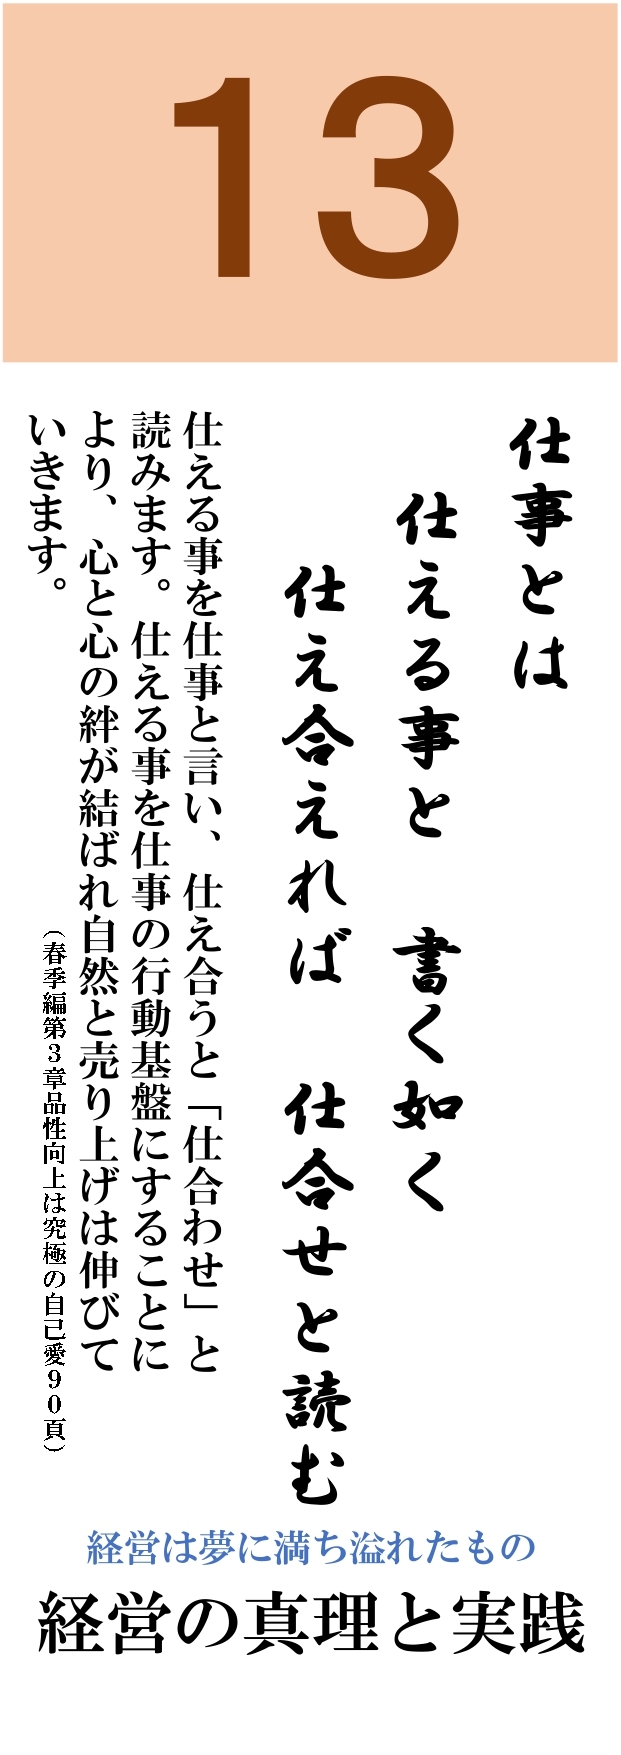 13
仕事とは
仕える事と　書く如く
仕え合えれば　仕合せと読む
仕える事を仕事と言い、仕え合うと「仕合わせ」と
読みます。仕える事を仕事の行動基盤にすることに
より、心と心の絆が結ばれ自然と売り上げは伸びて
いきます。
（春季編第３章品性向上は究極の自己愛９０頁）
経営は夢に満ち溢れたもの
経営の真理と実践